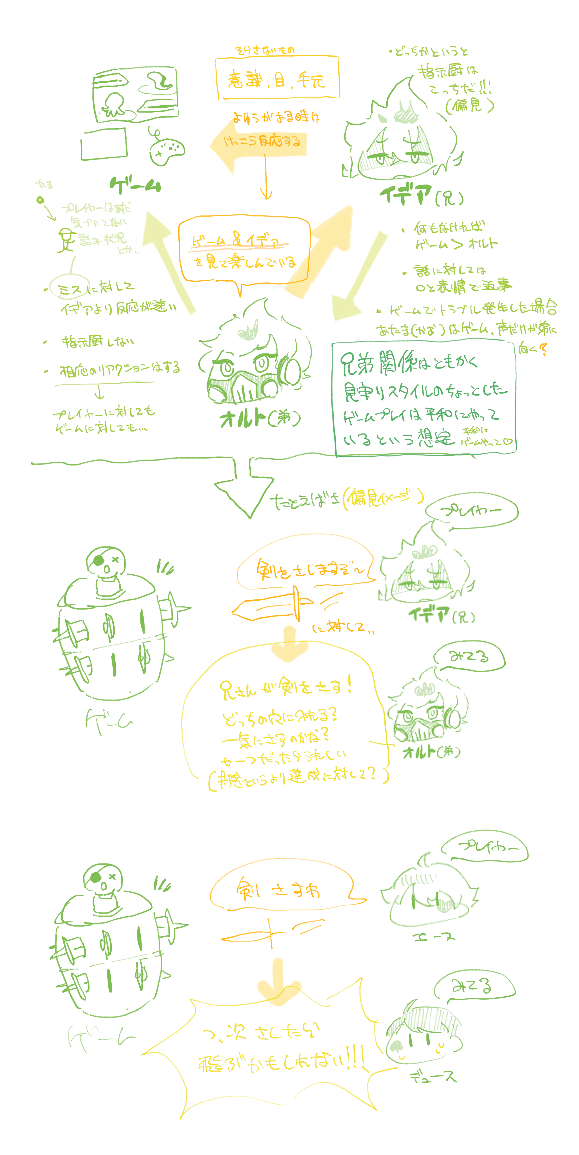 そらさないもの
意識、目、手元
よゆうがある時に
けっこう反応する
・どっちかというと
指示厨は
こっちだ!!!
(偏見)
ゲーム
イデア(兄)
プレイヤーはまだ
気づいてない
状況
とか..
ゲーム&イデア
を見て楽しんでいる
・何もなければ
ゲーム>オルト
・話に対しては
口と表情で返事
・ゲームでトラブル発生した場合
あたま(かお)はゲーム、声だけが弟に
向く?
・ミスに対して
イデアより反応が速い
・指示厨しない
・相応のリアクションはする
プレイヤーに対しても
ゲームに対しても...
オルト(弟)
兄弟関係はともかく
見守りスタイルのちょっとした
ゲームプレイは平和にやって
いるという想定
平和に
ゲームやって♡
たとえばさ(偏見イメージ)
プレイヤー
剣をさしますぞ〜
に対して..
イデア(兄)
ゲーム
兄さんが剣をさす!
どっちの穴に入れる?
一気にさすのかな?
もう一つだったらうれしい
みてる
オルト(弟)
プレイヤー
剣 さすわ
エース
ゲーム
みてる
つ、次 さしたらぞ
飛ぶかもしれない!!!
デュース